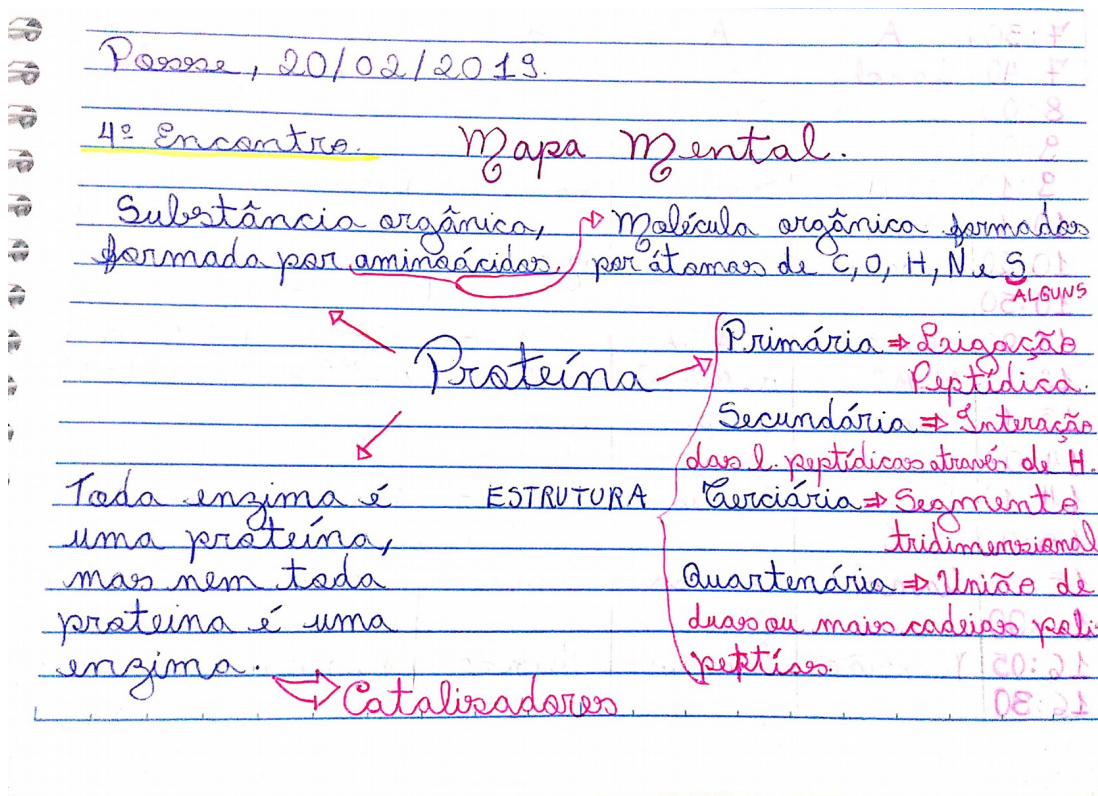 Posse, 20/02/2019.
4º Encontro. Mapa Mental.
Substância orgânica,
formada por aminoácidos.
Molécula orgânica formados
por átomos de C, O, H, N e S
ALGUNS
Proteína
Toda enzima é
uma proteína,
mas nem toda
proteina é uma
enzima.
Catalisadores
ESTRUTURA
Primária ⇒ Ligação
Peptídica.
Secundária ⇒ Interação
das l. peptídicas através de H.
Terciária ⇒ Segmento
tridimensional
Quartenária ⇒ União de
duas ou mais cadeias poli
peptíses.